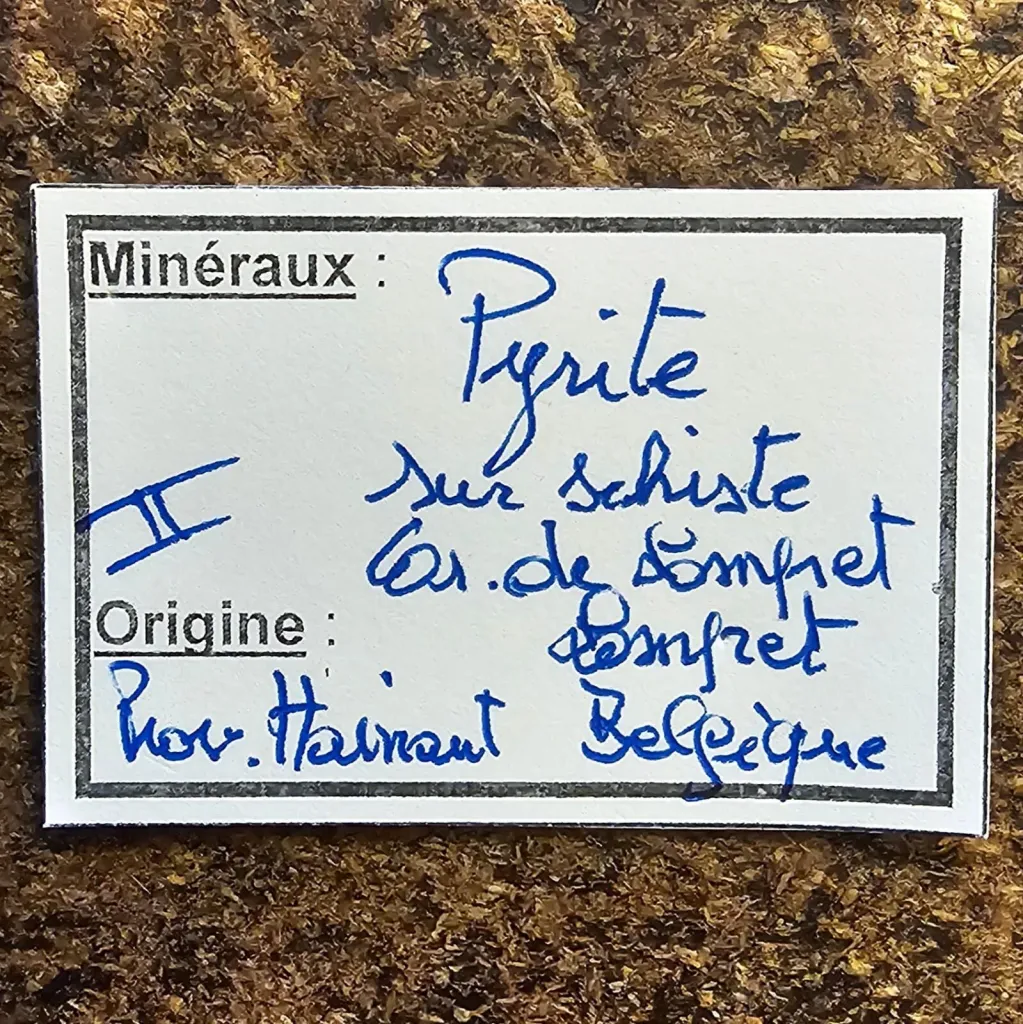 Minéraux :
Pyrite
sur schiste
II
Car. de Lompret
Origine :
Lompret
Prov. Hainaut Belgique